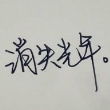 消失光年。